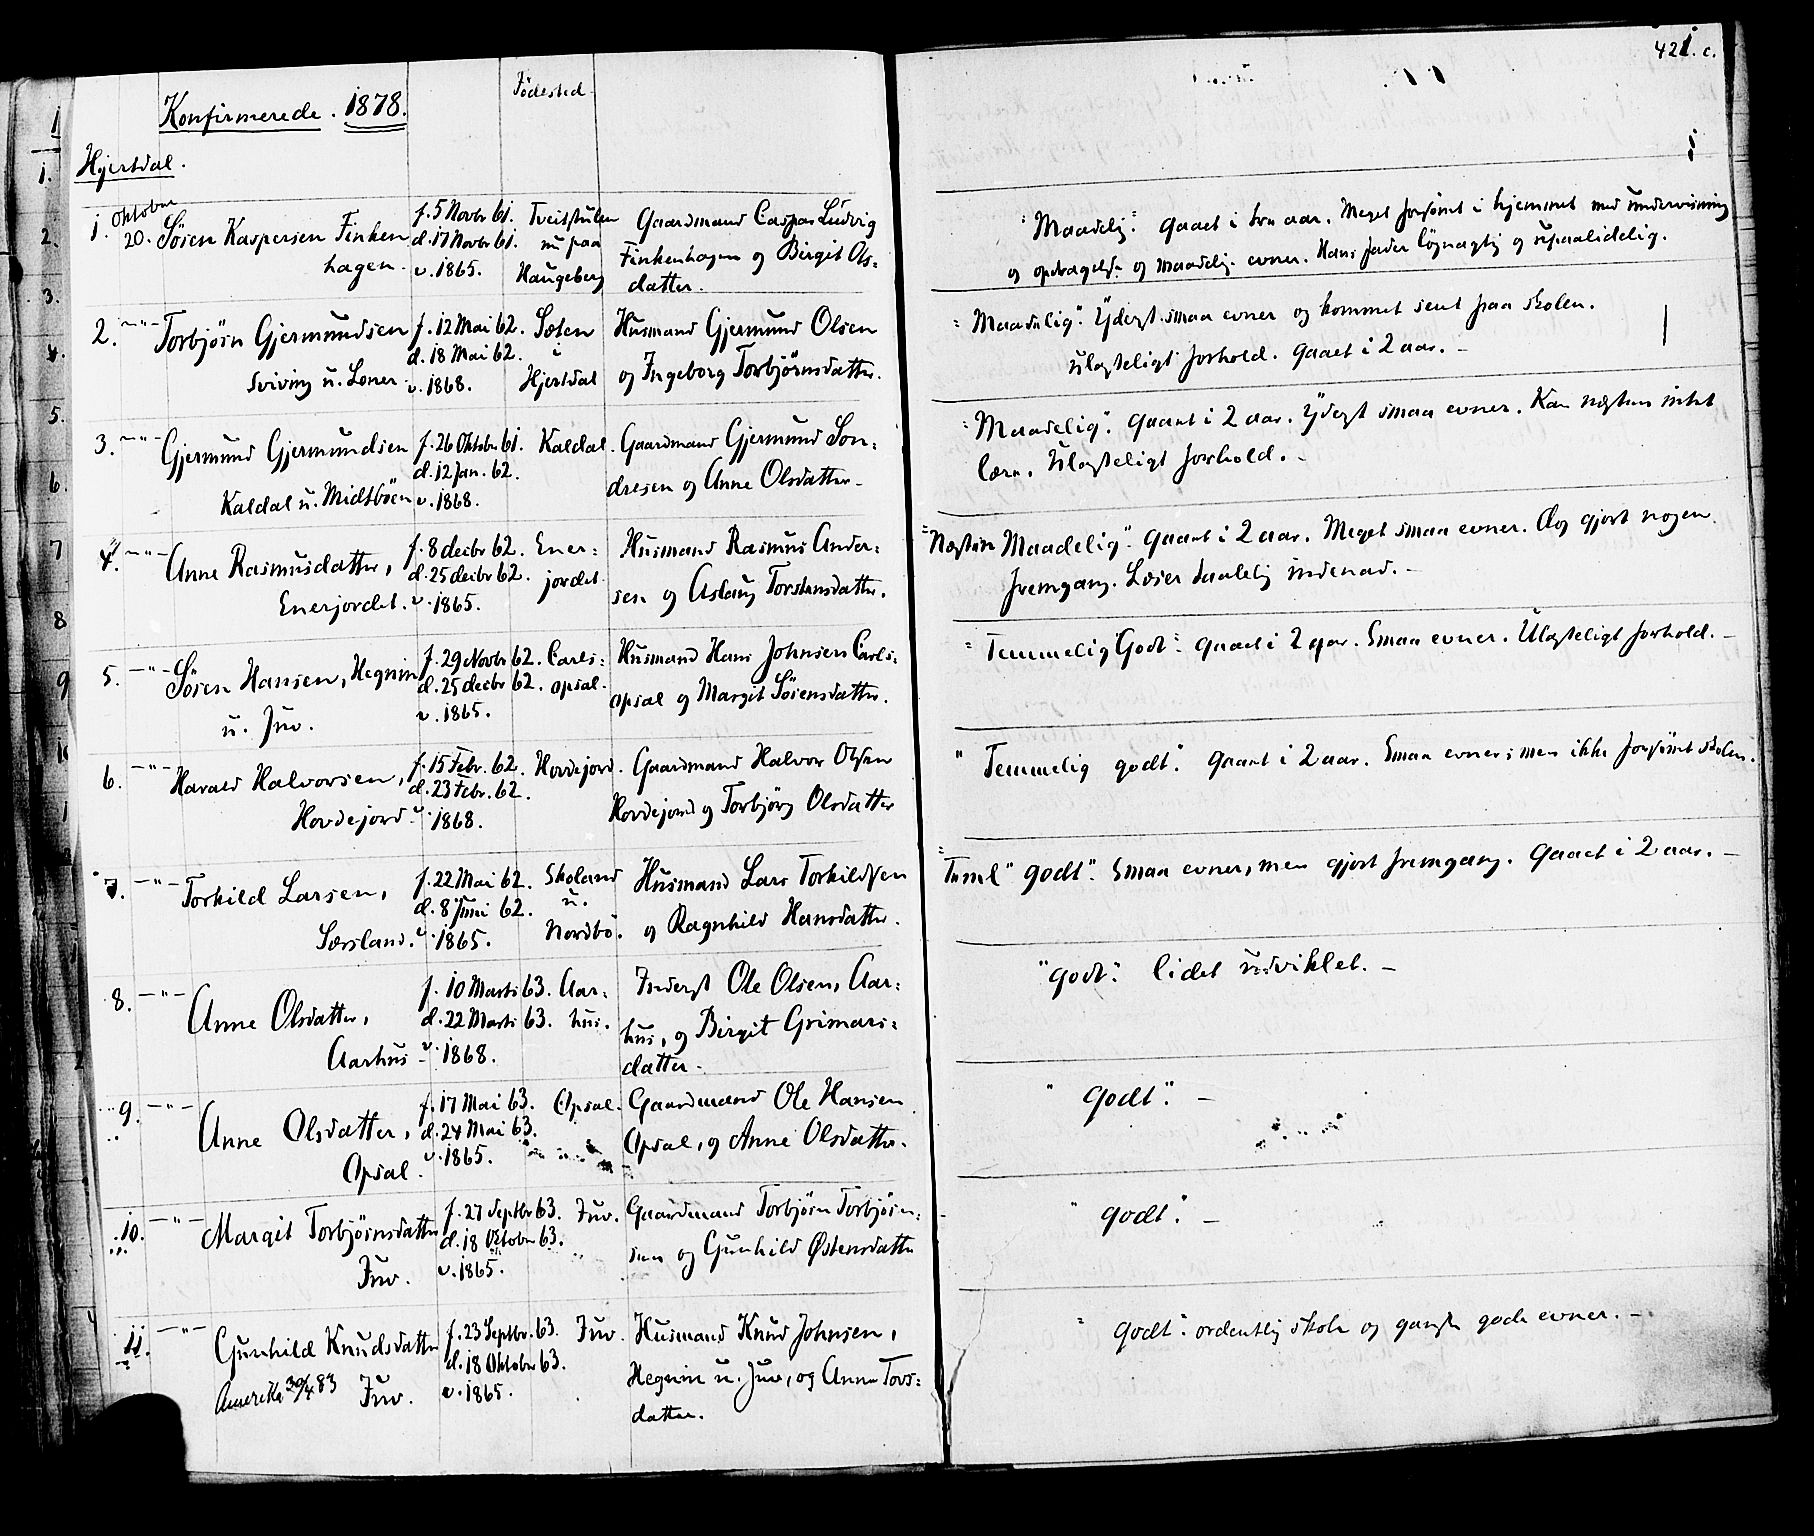 421. c.
Konfirmerede. 1878.
Födested
Hjertdal.
1. Oktober 20. Sören Kaspersen Finken
hagen.
f. 5 Novbr 61.
d. 17 Novbr 61.
v. 1865.
Tveitstulen
nu paa
Haugeberg
Gaardmand Caspar Ludvig
Finkenhagen og Birgit Ols=
datter.
"Maadelig". Gaaet i tre aar. Meget forsömt i hjemmet med undervisning
og opdragelse og maadelig evner. Hans fader løgnagtig og upaalidelig.
2. —"— Torbjörn Gjermundsen
Sviving u. Loner.
f. 12 Mai 62.
d. 18 Mai 62.
v. 1868.
Sølen
u
Hjertdal
Husmand Gjermund Olsen
og Ingeborg Torbjörnsdatter.
"Maadelig". Yderst smaa evner og kommet sent paa skolen.
Ulasteligt forhold. Gaaet i 2 aar. —
3. —"— Gjermund Gjermundsen
Kaldal u. Midtböen
f. 26 Oktobr 61.
d. 12 Jan. 62.
v. 1868.
Kaldal.
Gaardmand Gjermund Son=
dresen og Anne Olsdatter—
"Maadelig". Gaaet i 2 aar. Yderst smaa evner. Kan næsten intet
lære. Ulasteligt forhold. —
4. —"— Anne Rasmusdatter,
Enerjordet.
f. 8 decbr 62.
d. 25 decbr 62.
v. 1865.
Ener=
jordet.
Husmand Rasmus Ander=
sen og Aslaug Torstensdatter.
"Næsten Maadelig". Gaaet i 2 aar. Meget smaa evner. Og gjort nogen
fremgang. Læser taalelig indenad. —
5. —"— Sören Hansen, Hegnin
u. Juv.
f. 29 Novbr 62.
d. 25 decbr 62.
v. 1865.
Carls=
opsal.
Husmand Hans Johnsen Carls=
opsal og Margit Sörensdatter.
"Temmelig Godt". Gaaet i 2 aar. Smaa evner. Ulasteligt forhold. —
6. —"— Harald Halvorsen,
Hovdejord.
f. 15 Febr. 62.
d. 23 Febr. 62.
v. 1868.
Hovdejord.
Gaardmand Halvor Olsen
Hovdejord og Torbjörg Olsdatter
"Temmelig godt". Gaaet i 2 aar. Smaa evner; men ikke forsömt skolen.
7. —"— Torkild Larsen,
Særsland.
f. 22 Mai 62.
d. 8 Juni 62.
v. 1865.
Skoland
u.
Nordbö.
Husmand Lars Torkildsen
og Ragnhild Hansdatter.
"Teml" godt". Smaa evner, men gjort fremgang. Gaaet i 2 aar. —
8. —"— Anne Olsdatter,
Aarhus
f. 10 Marts 63.
d. 22 Marts 63.
v. 1868.
Aar=
hus.
Inderst Ole Olsen, Aar=
hus, og Birgit Grimars=
datter.
"Godt". lidet udviklet. —
9. —"— Anne Olsdatter,
Opsal.
f. 17 Mai 63.
d. 24 Mai 63.
v. 1865.
Opsal.
Gaardmand Ole Hansen
Opsal, og Anne Olsdatter.
"Godt". —
10. —"— Margit Torbjörnsdatter
Juv.
f. 27 Septbr 63.
d. 18 Oktober 63.
v. 1865.
Juv.
Gaardmand Torbjörn Torbjörn=
sen og Gunhild Østensdatter
"Godt". —
11. —"— Gunhild Knudsdatter
Amerika 30/4 83 Juv.
f. 23 Septbr. 63.
d. 18 Oktober 63.
v. 1865.
Juv.
Husmand Knud Johnsen,
Hegnin u. Juv, og Anne Tovs=
datter.
"Godt". ordentlig skole og ganske gode evner. —